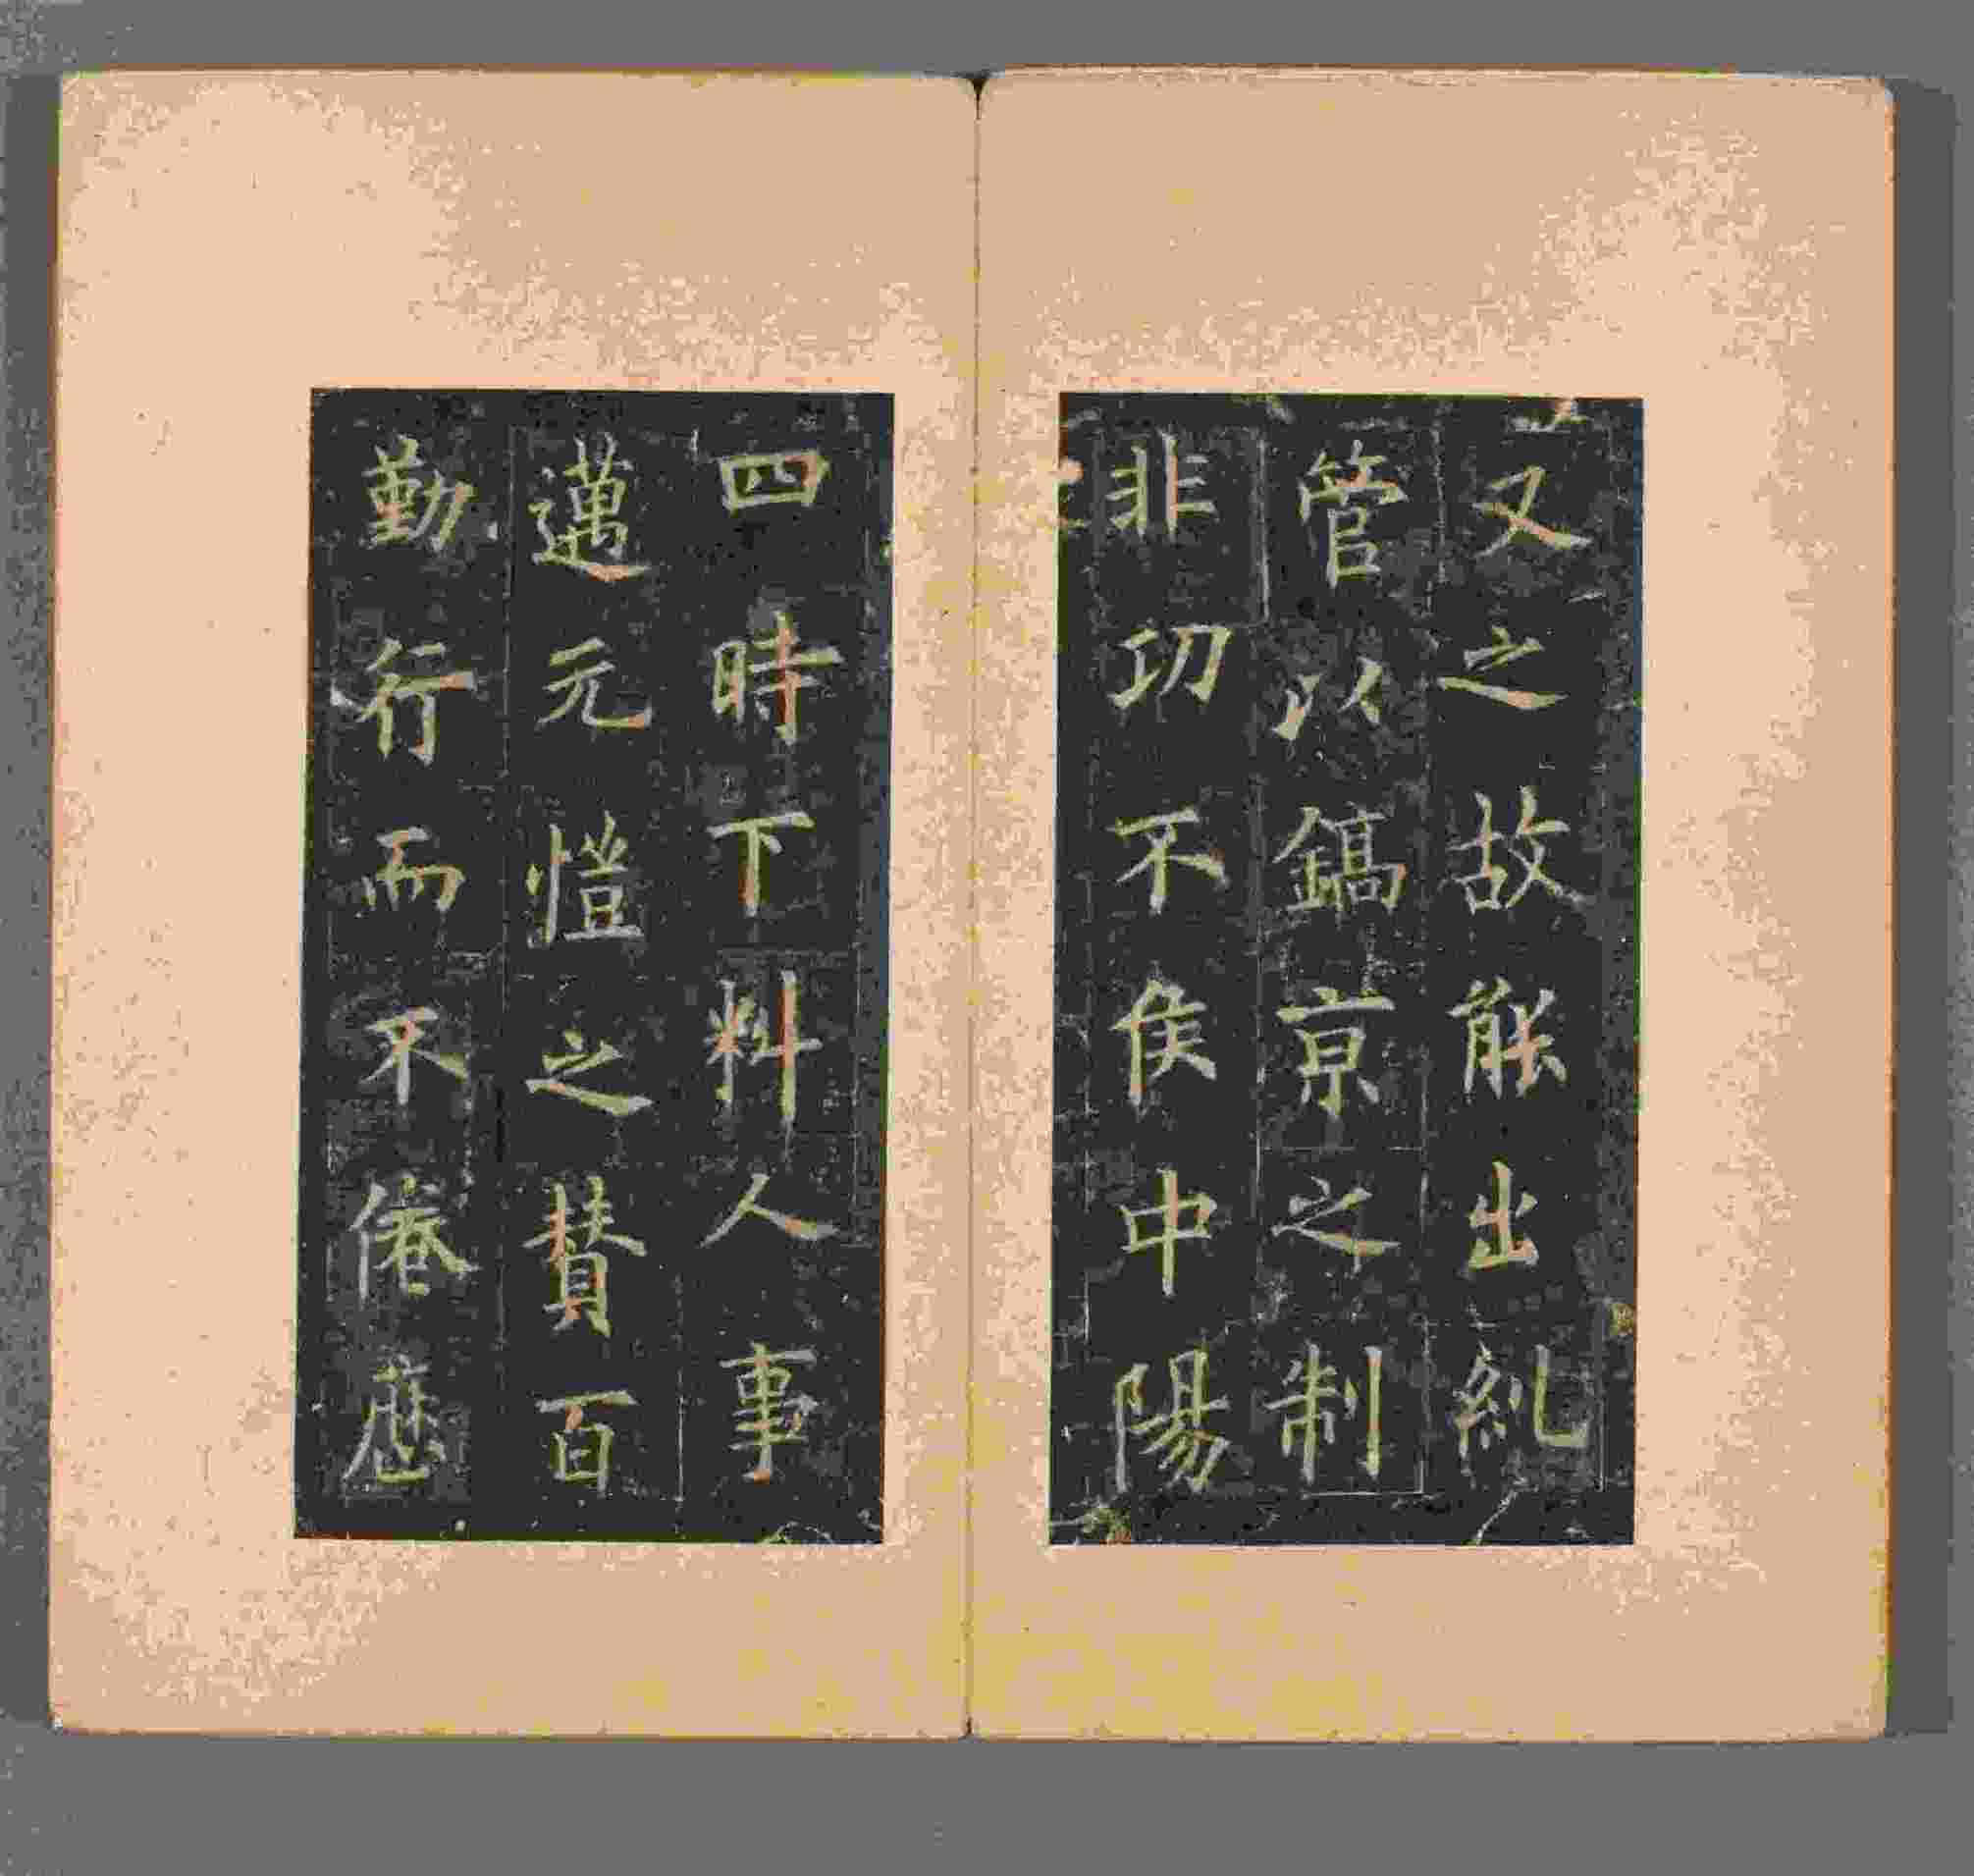 又之故能出糺
管以鎬亰之制
非㓛不侯中陽
四時下料人事
邁元愷之賛百
勤行而不倦